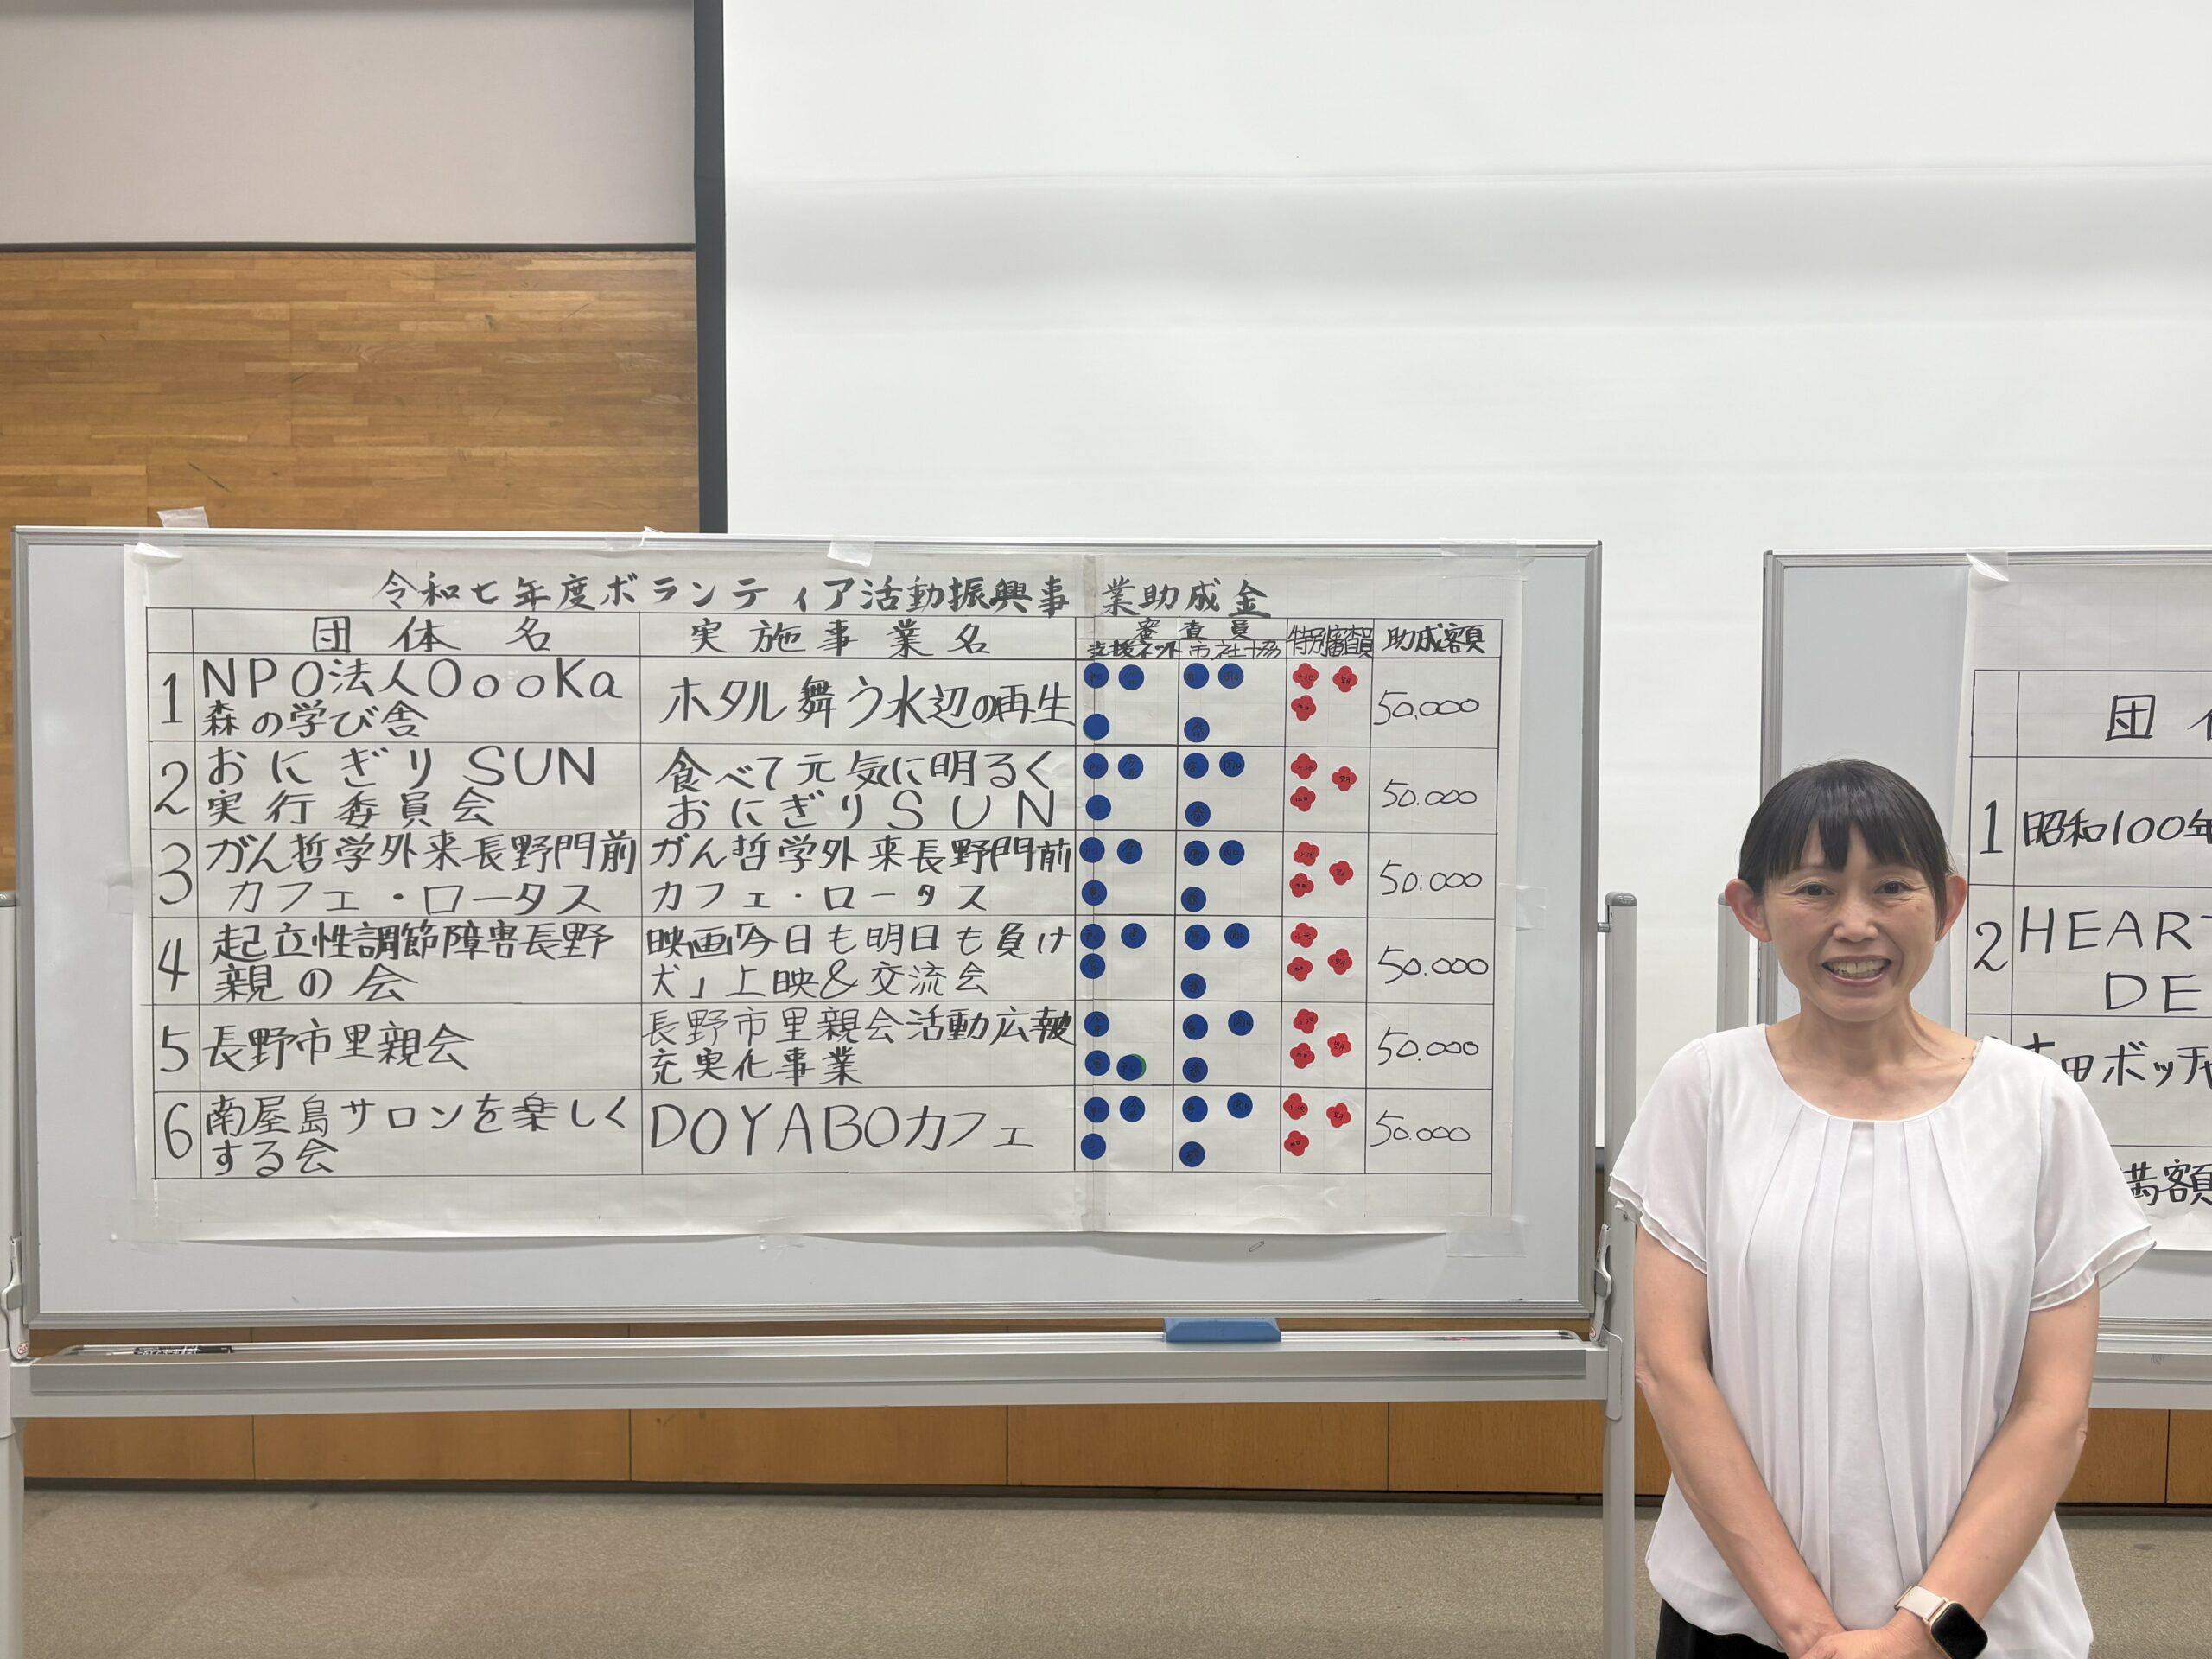 令和七年度ボランティア活動振興事業助成金
団体名 実施事業名 審査員 特別審査員 助成額
支援ネット 市社協
1 NPO法人OooKa ホタル舞う水辺の再生 50.000
森の学び舎
2 おにぎりSUN 食べて元気に明るく 50.000
実行委員会 おにぎりSUN
3 がん哲学外来長野門前 がん哲学外来長野門前 50.000
カフェ・ロータス カフェ・ロータス
4 起立性調節障害長野 映画「今日も明日も負け 50.000
親の会 犬」上映&交流会
5 長野市里親会 長野市里親会活動広報 50.000
充実化事業
6 南屋島サロンを楽しく DOYABOカフェ 50.000
する会
団
1 昭和100年
2 HEAR
DE
田ボッチャ
満額